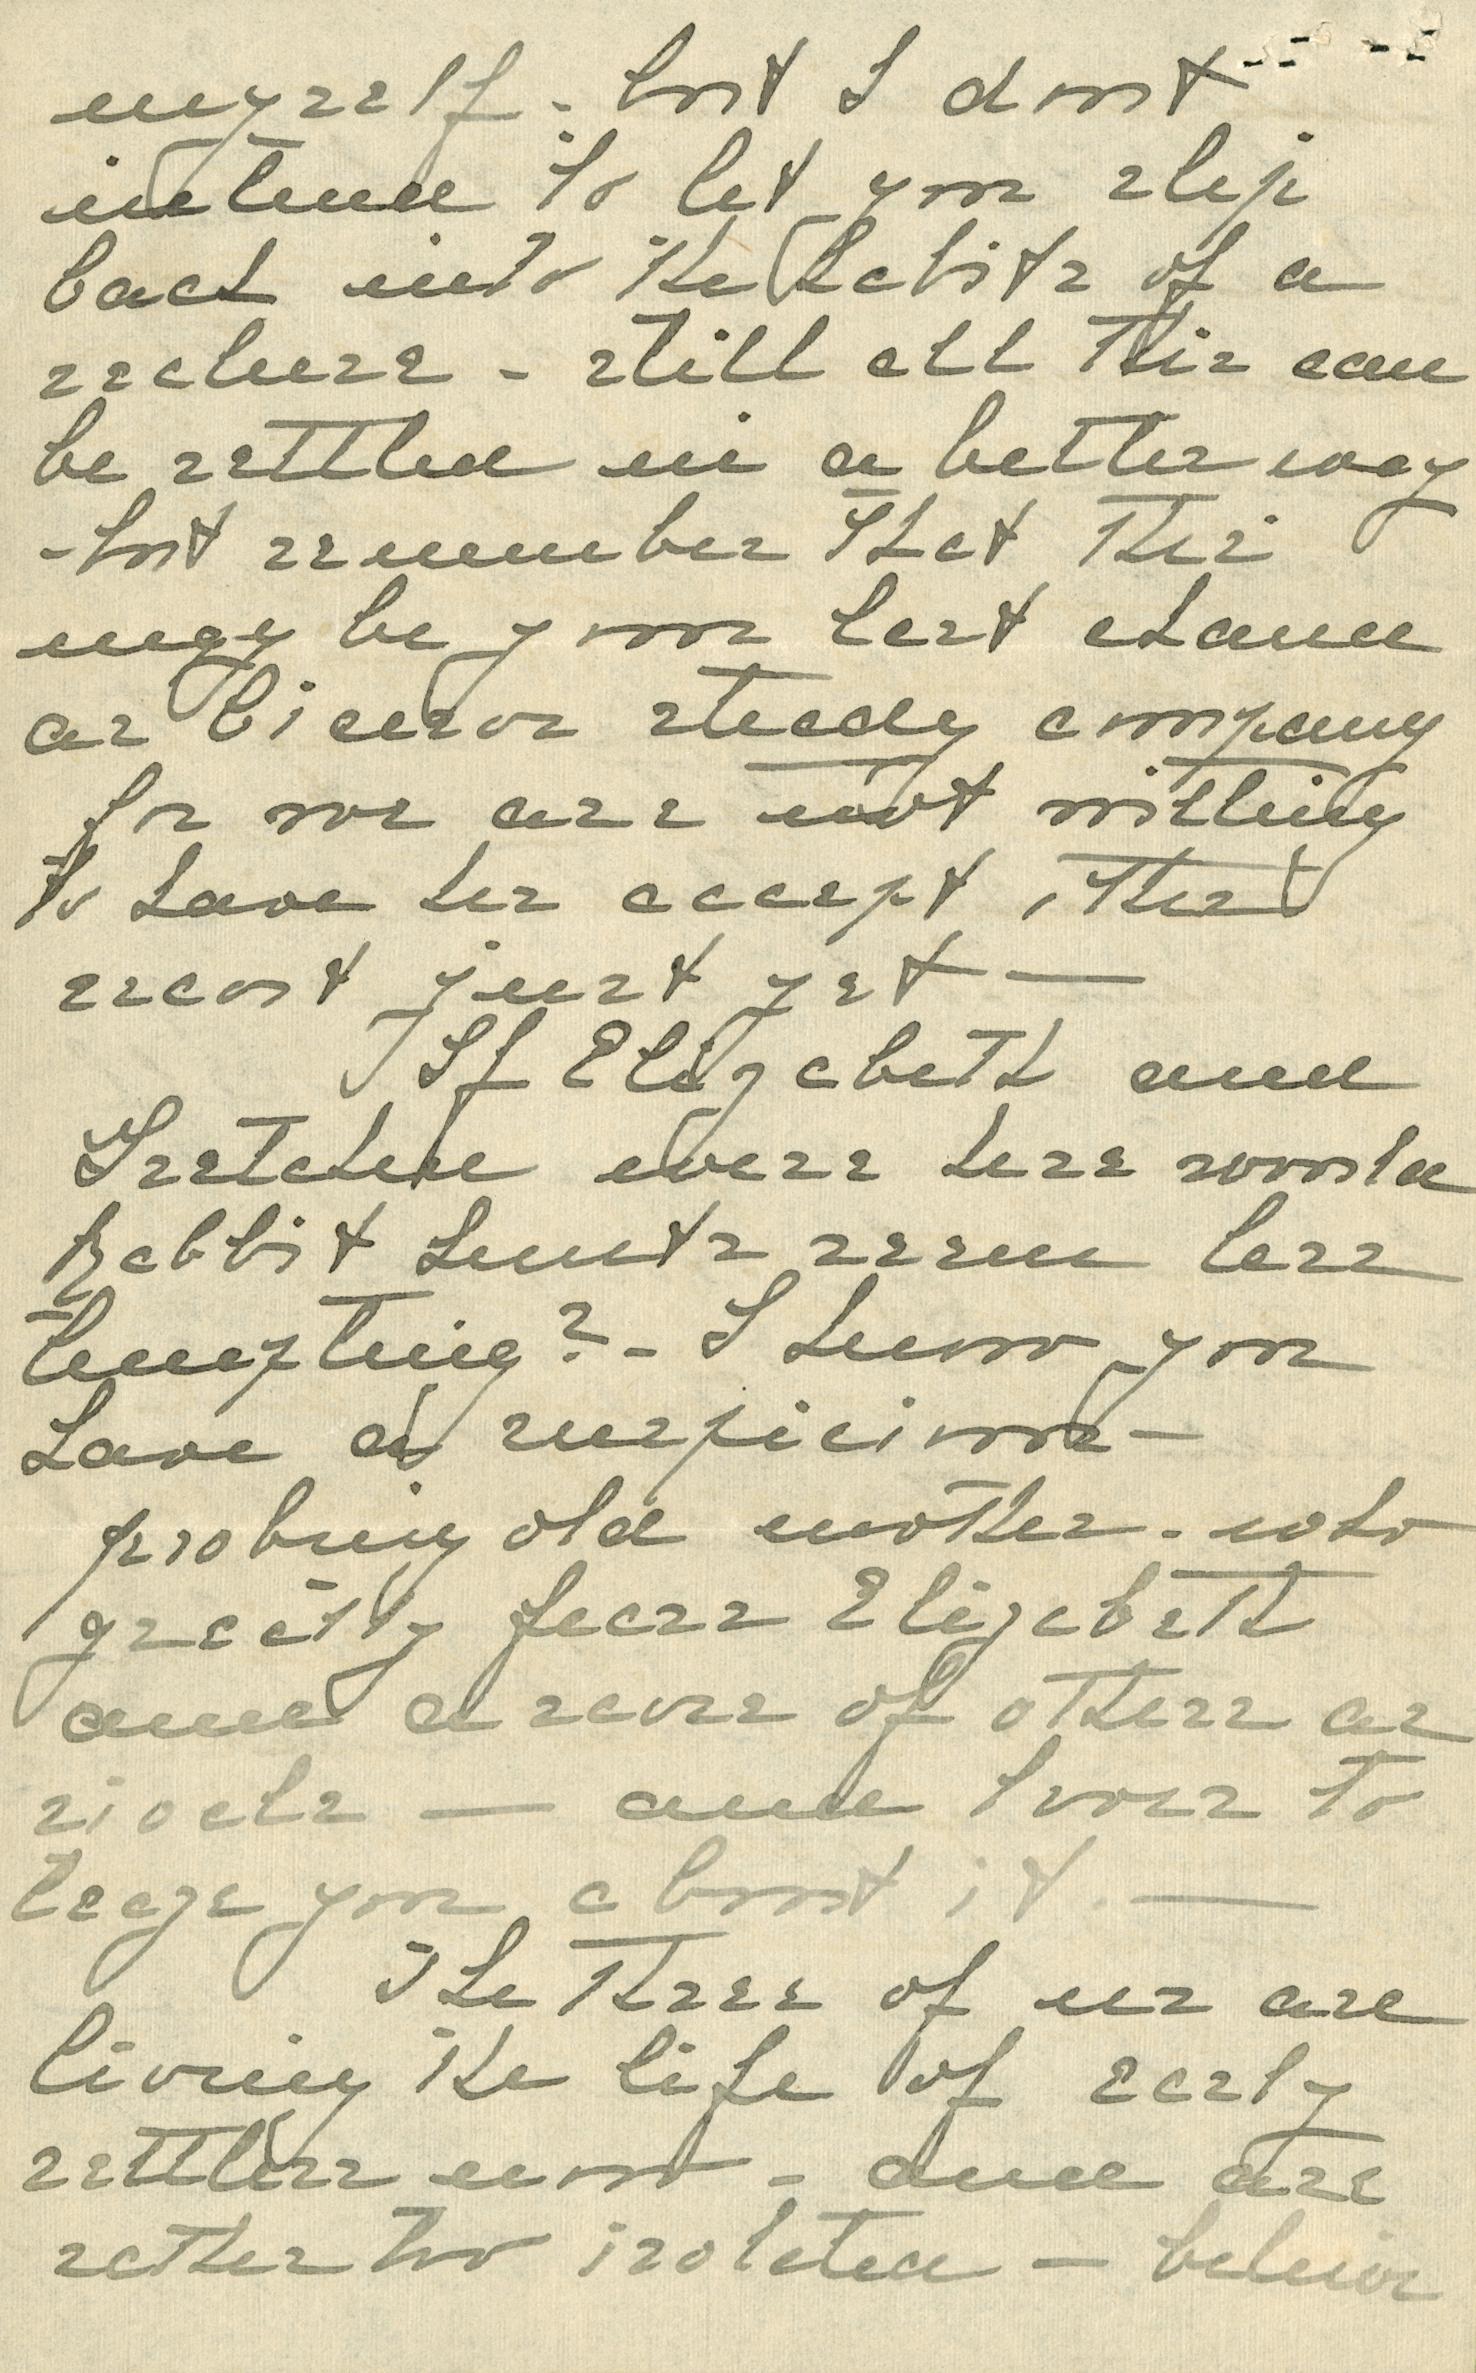 myself - but I don't
intend to let you slip
back into the habits of a
recluse - still all this can
be settled in a better way
- but remember that this
may be your last chance
as Eleanor steady company
for we are not willing
to have her accept, that
scout just yet —
If Elizabeth and
Gretchen were here would
Rabbit hunts seem less
tempting? - I know you
have a suspicious -
probing old mother - who
greatly fears Elizabeth
and a score of others as
rivals — and loves to
tease you about it. —
The three of us are
living the life of early
settlers now - and are
rather too isolated - beleive